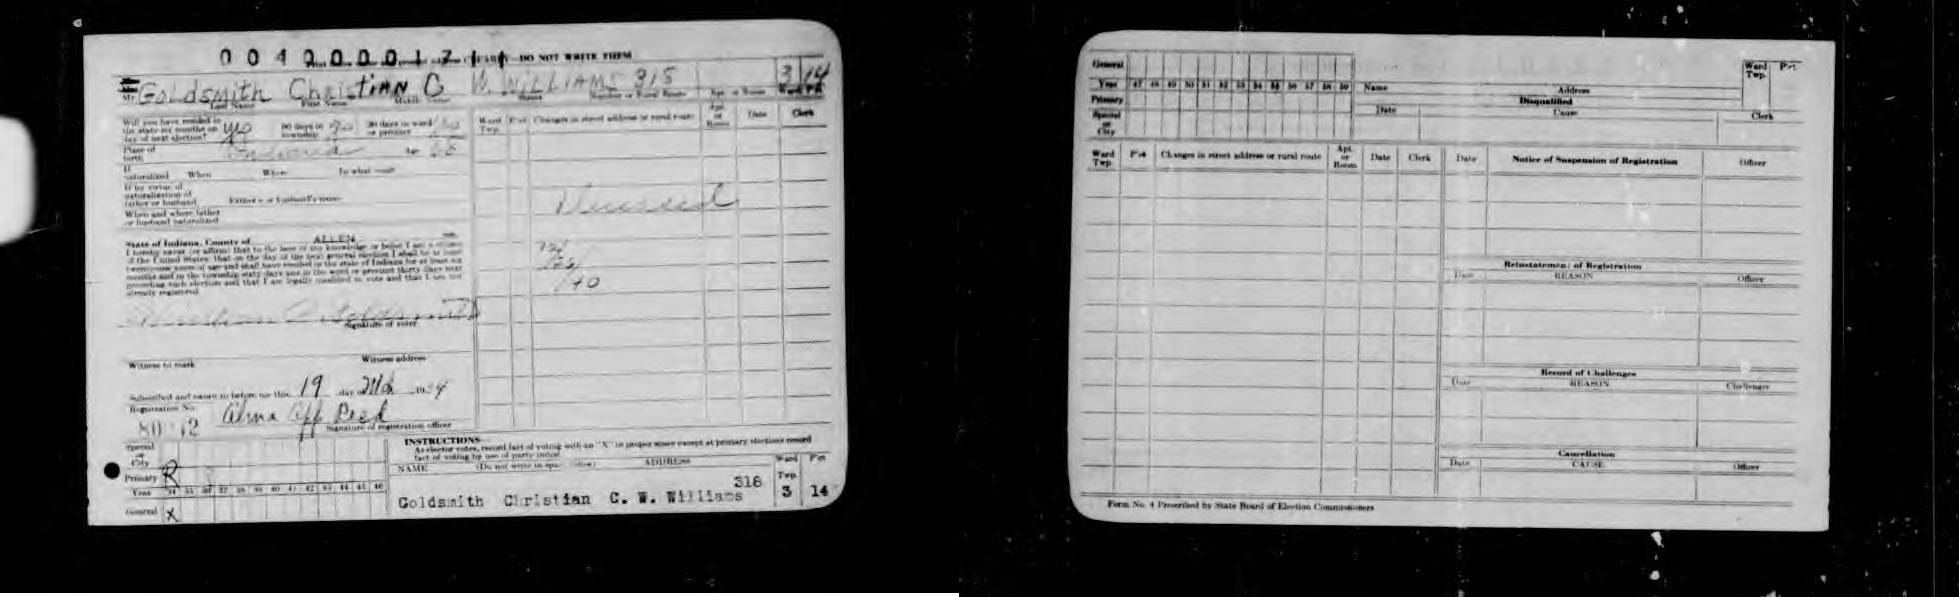 0040000171 DO NOT WRITE THEM
GOLDSMITH CHRISTIAN C W. WILLIAMS 318 3 14
Last Name First Name Middle Name Street Number or Rural Route Apt. or Room Ward Pct
Will you have resided in
the state six months on
day of next election? yes 60 days in township yes 30 days in ward or precinct
Place of
birth
If
naturalized When Where In what court
If by virtue of
naturalization of
father or husband Father's or husband's name
When and where father
or husband naturalized
Ward Twp. Pct Changes in street address or rural route Apt. or Room Date Clerk
Deceased
State of Indiana, County of ALLEN ss.
I hereby swear (or affirm) that to the best of my knowledge or belief I am a citizen
of the United States; that on the day of the next general election I shall be at least
twenty-one years of age and shall have resided in the state of Indiana for at least six
months and in the township sixty days and in the ward or precinct thirty days next
preceding such election and that I am legally qualified to vote and that I am not
already registered.
Signature of voter
Witness to mark Witness address
Subscribed and sworn to before me this 19 day of 34
Registration No. Alma Reed
Signature of registration officer
Special
or
City
Primary R
Year 34 35 36 37 38 39 40 41 42 43 44 45 46
General X
INSTRUCTIONS
As elector votes, record fact of voting with an "X" in proper space except at primary elections record
fact of voting by use of party initial
NAME (Do not write in space below) ADDRESS Ward Twp. Pct
318
Goldsmith Christian C. W. Williams 3 14
General
Year 47 48 49 50 51 52 53 54 55 56 57 58 59
Primary
Special
or
City
Name Address Ward Twp. Pct
Disqualified
Date Cause Clerk
Ward Twp. Pct Changes in street address or rural route Apt. or Room Date Clerk
Date Notice of Suspension of Registration Officer
Reinstatement of Registration
Date REASON Officer
Record of Challenges
Date REASON Challenger
Cancellation
Date CAUSE Officer
Form No. 4 Prescribed by State Board of Election Commissioners